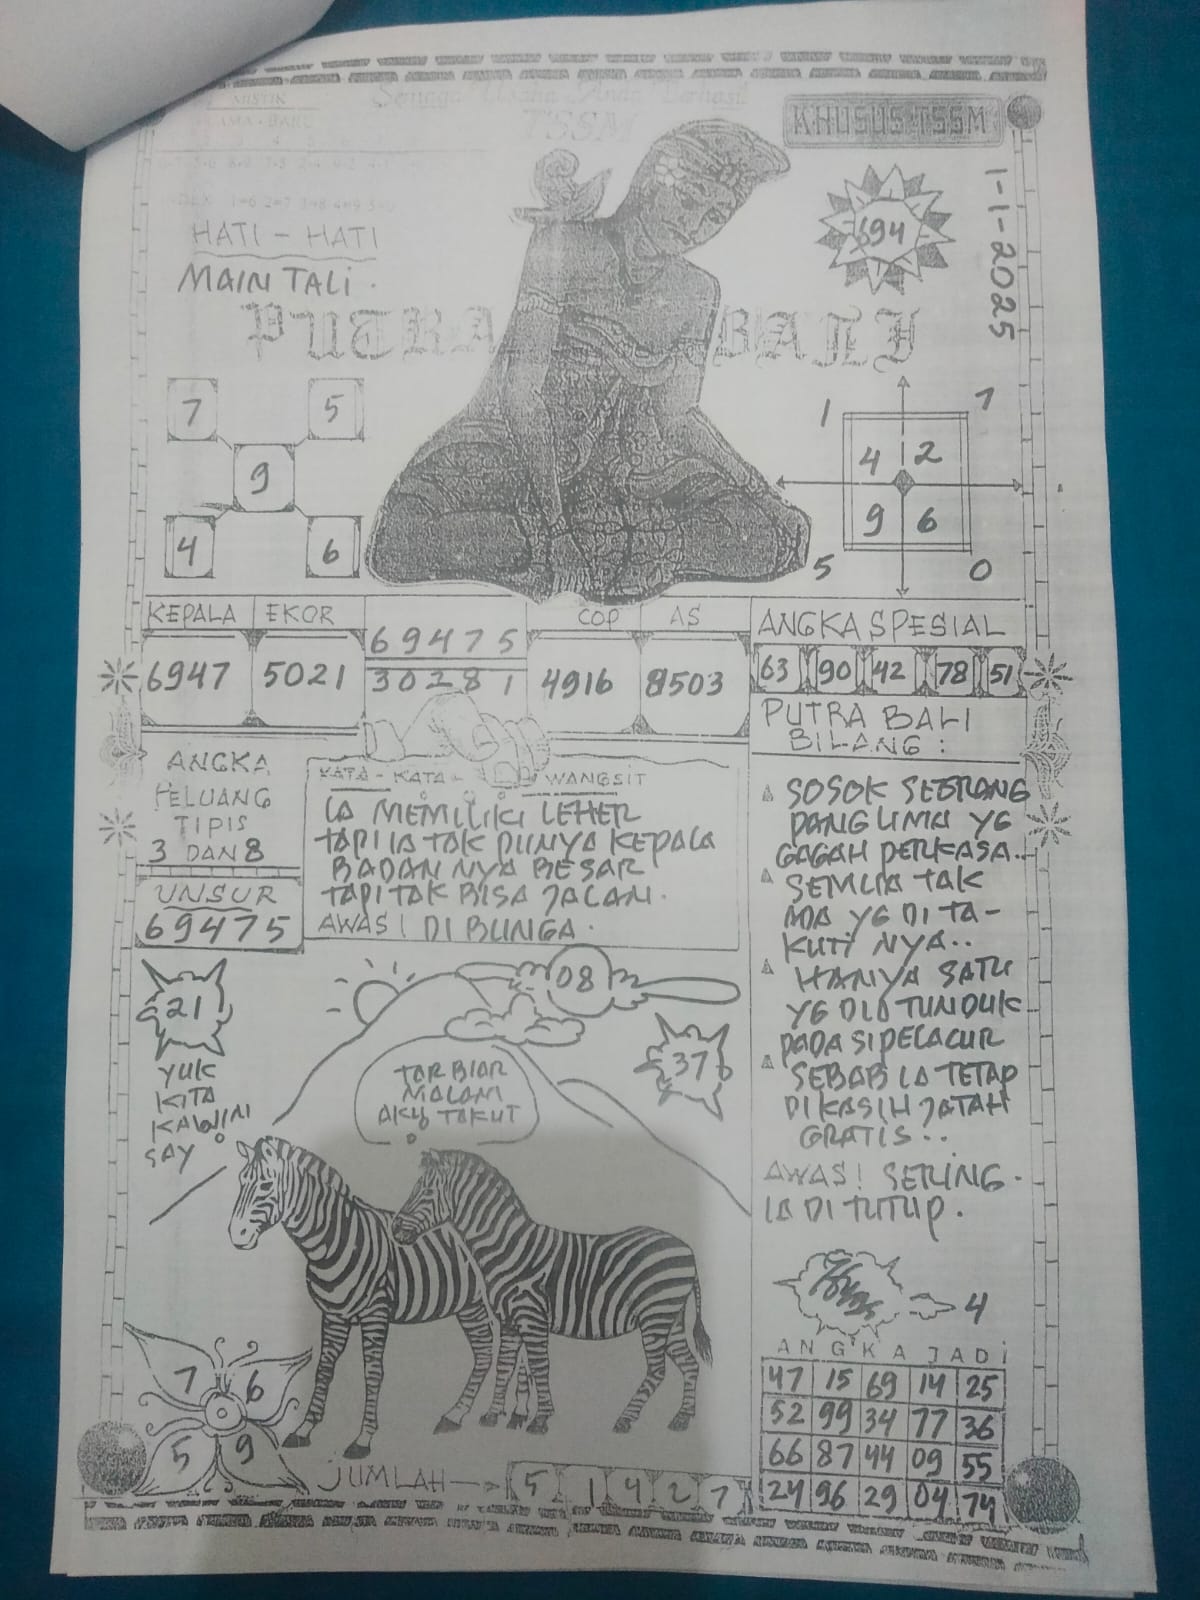 MISTIK
Semoga Usaha Anda Berhasil
TSSM
KHUSUS-TSSM
1-1-2025
694
HATI - HATI
MAIN TALI.
PUTRA BALI
7 5
9
4 6
1 7
4 2
9 6
5 0
KEPALA EKOR
6947 5021
69475
30281
COP AS
4916 8503
ANGKA SPESIAL
63 90 42 78 51
ANGKA
PELUANG
TIPIS
3 DAN 8
UNSUR
69475
KATA - KATA - WANGSIT
IA MEMILIKI LEHER
TAPI IA TAK PUNYA KEPALA
BADAN NYA BESAR
TAPI TAK BISA JALAN.
AWAS! DI BUNGA.
PUTRA BALI
BILANG:
SOSOK SEORANG
PANGLIMA YG
GAGAH PERKASA..
SEMUA TAK
ADA YG DI TA-
KUTI NYA..
HANYA SATU
YG DIA TUNDUK
PADA SI PELACUR
SEBAB IA TETAP
DI KASIH JATAH
GRATIS..
AWAS! SERING.
IA DI TUTUP.
21
YUK
KITA
KAWINI
SAY
08
37
TAR BIAR
MALAM
AKU TAKUT
7 6
5 9
JUMLAH 5 1 4 2 7
4
ANGKA JADI
47 15 69 14 25
52 99 34 77 36
66 87 44 09 55
24 96 29 04 74